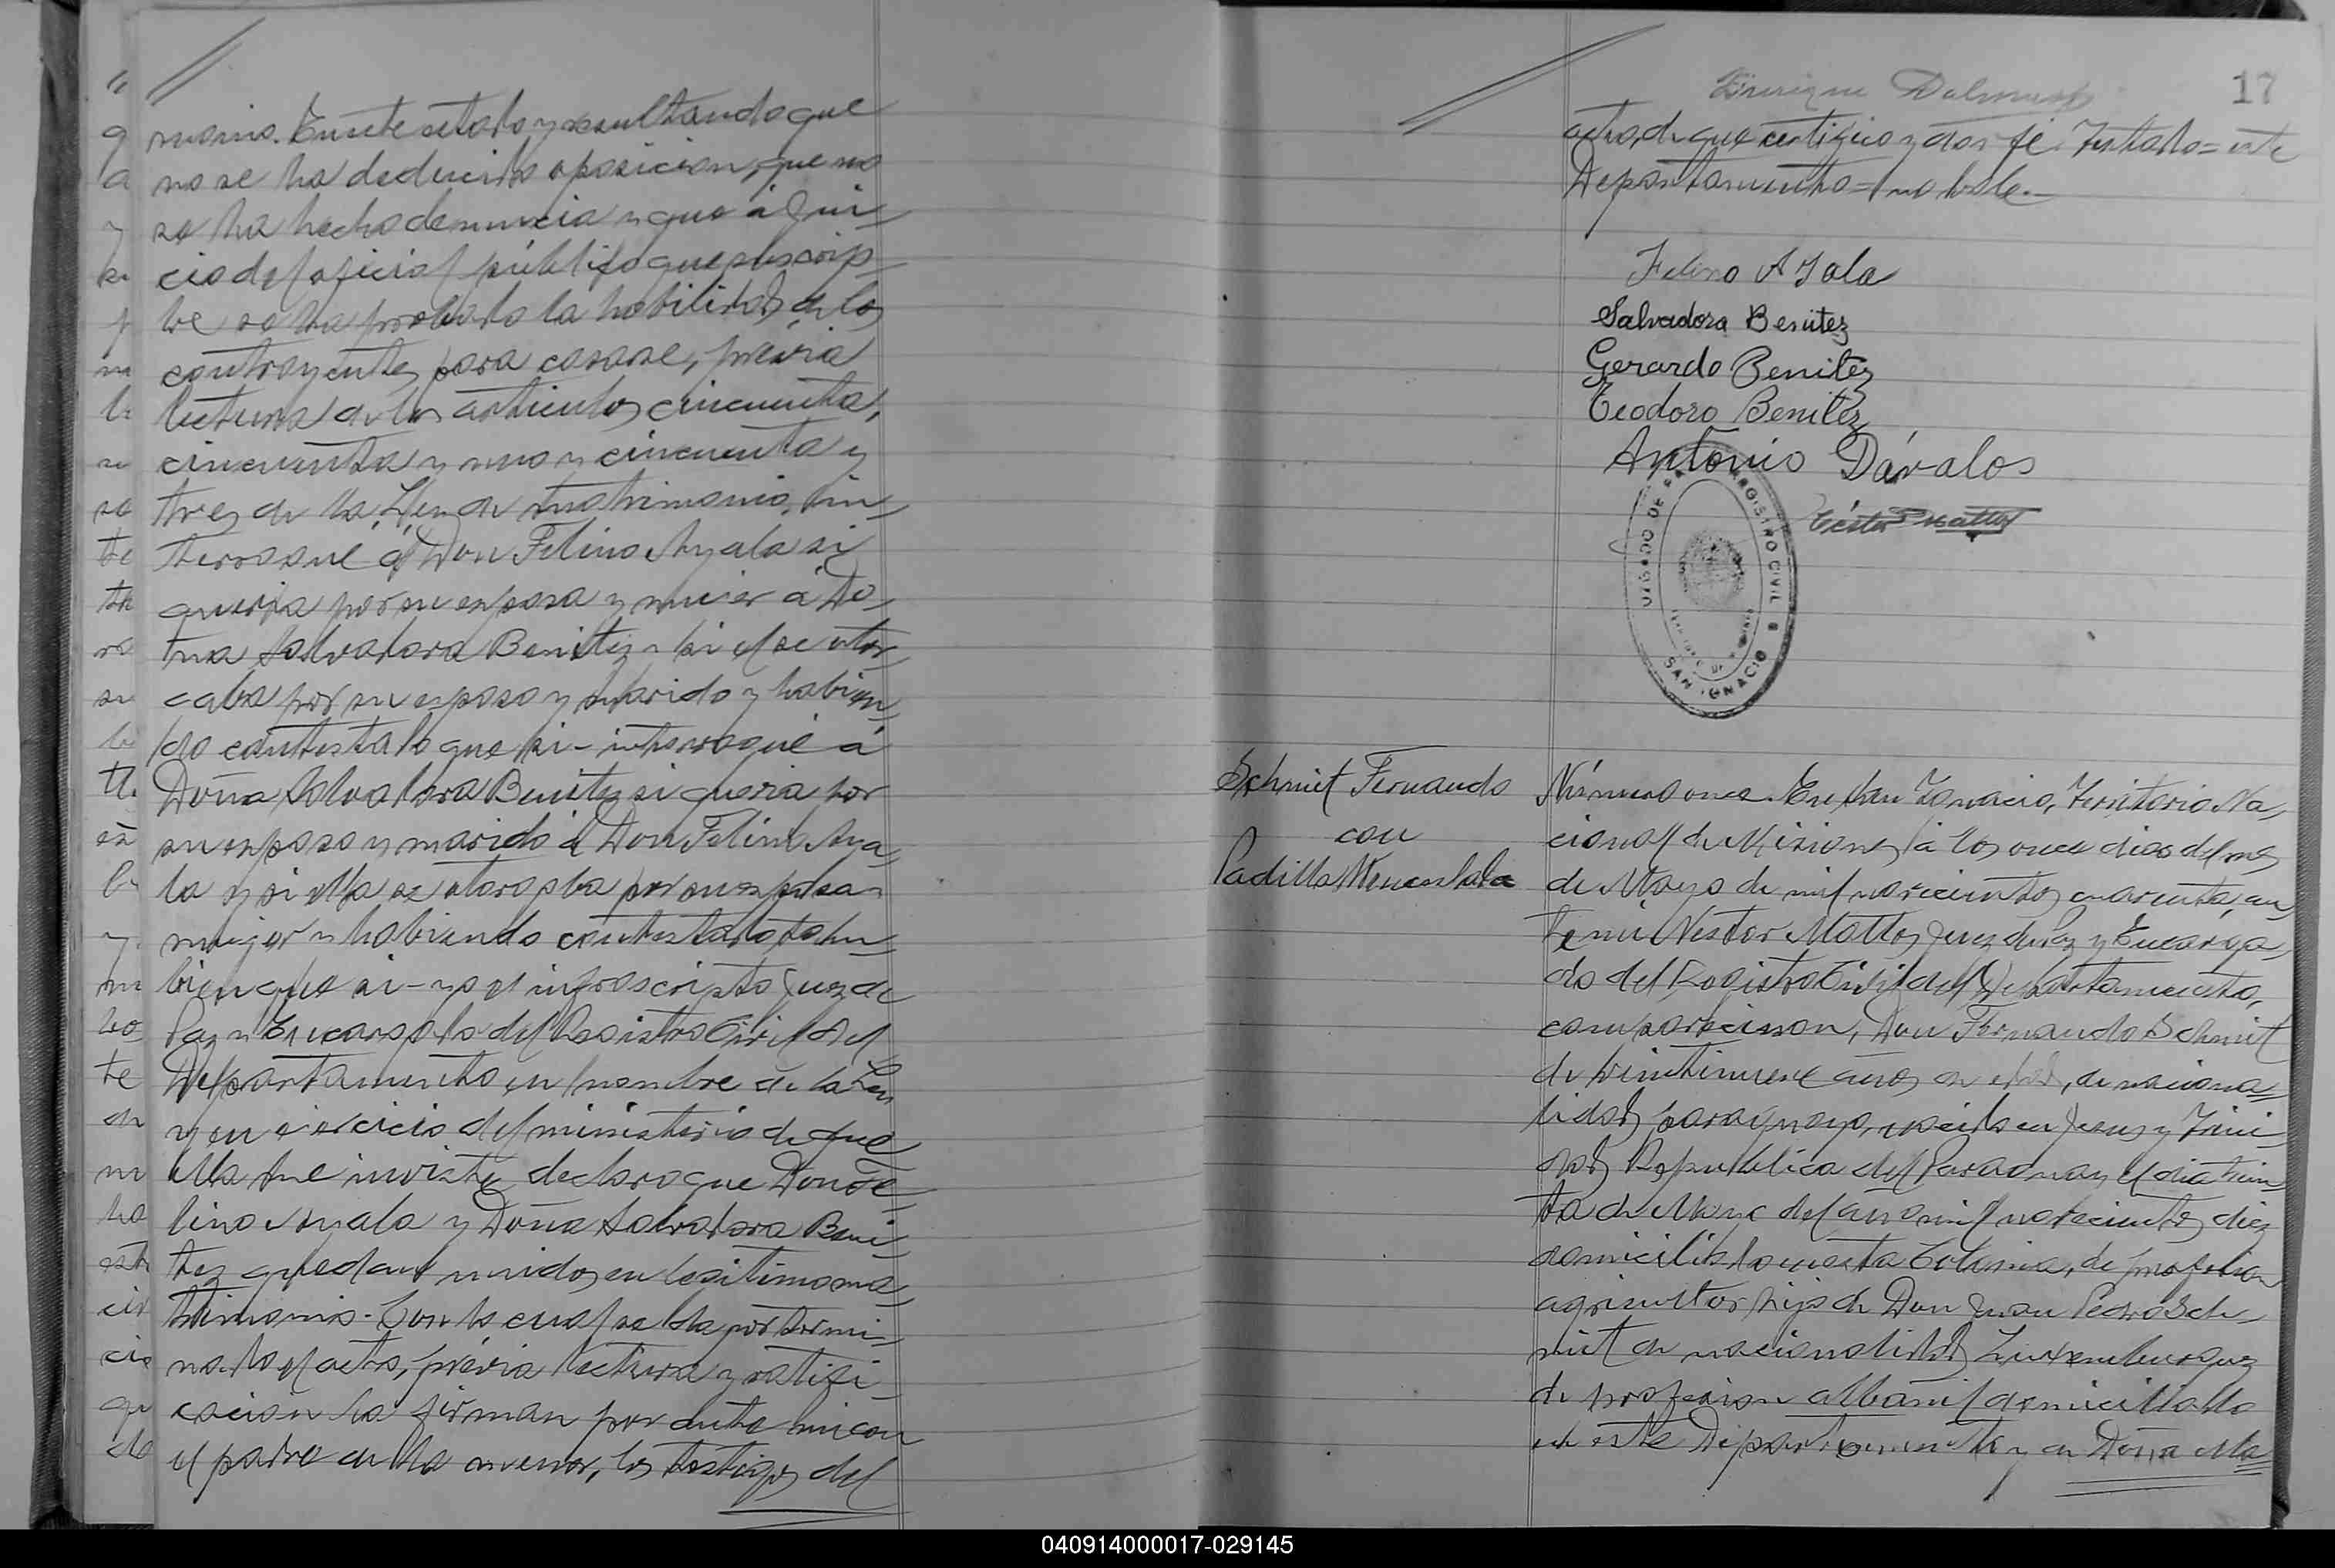 monio. En este estado y resultando que
no se ha deducido oposicion, que no
se ha hecho denuncia y que á jui-
cio del oficial público que suscrip-
be se ha probado la habilidad de los
contrayentes para casarse, prévia
lectura de los articulos cincuenta,
cincuenta y uno y cincuenta y
tres de la Ley de Matrimonio, in-
terrogué á Don Felino Ayala si
queria por su esposa y mujer á Do-
ña Salvadora Benitez y si el se otor-
gaba por su esposo y marido y habien-
do contestado que si- interrogué á
Doña Salvadora Benitez si queria por
su esposo y marido á Don Felino Aya-
la y si ella se otorgaba por su esposa y
mujer y habiendo contestado tam-
bien que si- yo el infroscripto Juez de
Paz y Encargado del Registro Civil del
Departamento en nombre de la Ley
y en ejercicio del ministerio de que
ella me inviste, declaro que Don Fe-
lino Ayala y Doña Salvadora Beni-
tez quedan unidos en legitimo ma-
trimonio. Con lo cual se dá por termi-
nado el acto, prévia lectura y ratifi-
cacion la firman por ante mi con
el padre de la menor, los testigos del
17
Enrique
acto, de que certifico y doy fé. Testado= este
Departamento= no vale.-
Felino Ayala
Salvadora Benitez
Gerardo Benitez
Teodoro Benitez
Antonio Dávalos
JUZGADO DE PAZ REGISTRO CIVIL
SAN IGNACIO
Schmit Fernando
con
Padilla Wenceslada
Número once. En San Ignacio, Territorio Na-
cional de Misiones á los once dias del mes
de Mayo de mil novecientos cuarenta, an-
te mi Nestor Mattos Juez de Paz y Encarga-
do del Registro Civil del Departamento,
comparecieron, Don Fernando Schmit
de veintinueve años de edad, de naciona-
lidad paraguayo, nacido en Jesus y Trini-
dad Republica del Paraguay el dia trein-
ta de del año mil novecientos diez
domiciliado en esta Colonia, de profesion
agricultor hijo de Don Juan Pedro Sch-
mit de nacionalidad Luxemburgues
de profesion albañil domiciliado
en este Departamento y de Doña Ma-
040914000017-029145